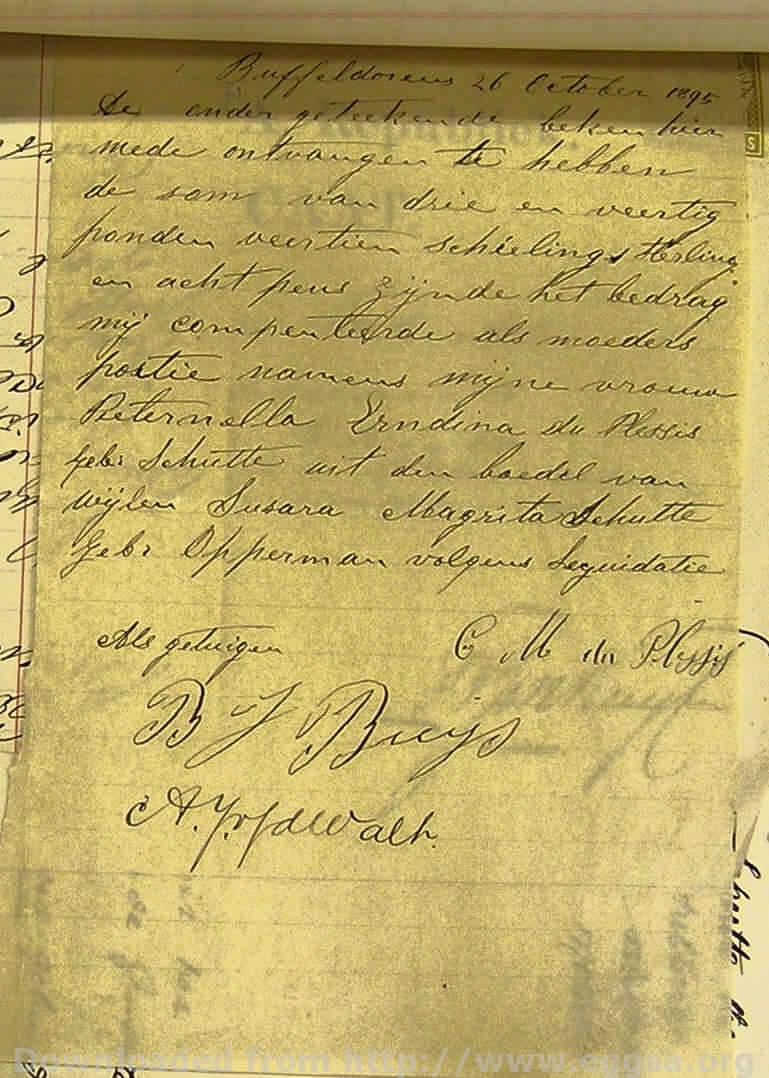 Buffeldorens 26 October 1895
De ondergeteekende beken hier
mede ontvangen te hebben
de som van drie en veertig
ponden veertien schielings sterling
en acht pens zijnde het bedrag
mij compenteerde als moeders
portie namens mijne vrouw
Peternella Erndina du Plessis
geb: Schutte uit den boedel van
wijlen Susara Magrita Schutte
geb: Opperman volgens Lequidatie
Als getuigen C M du Plessis
B J Buijs
A. J. vd Walt.
Downloaded from http://www.eggsa.org